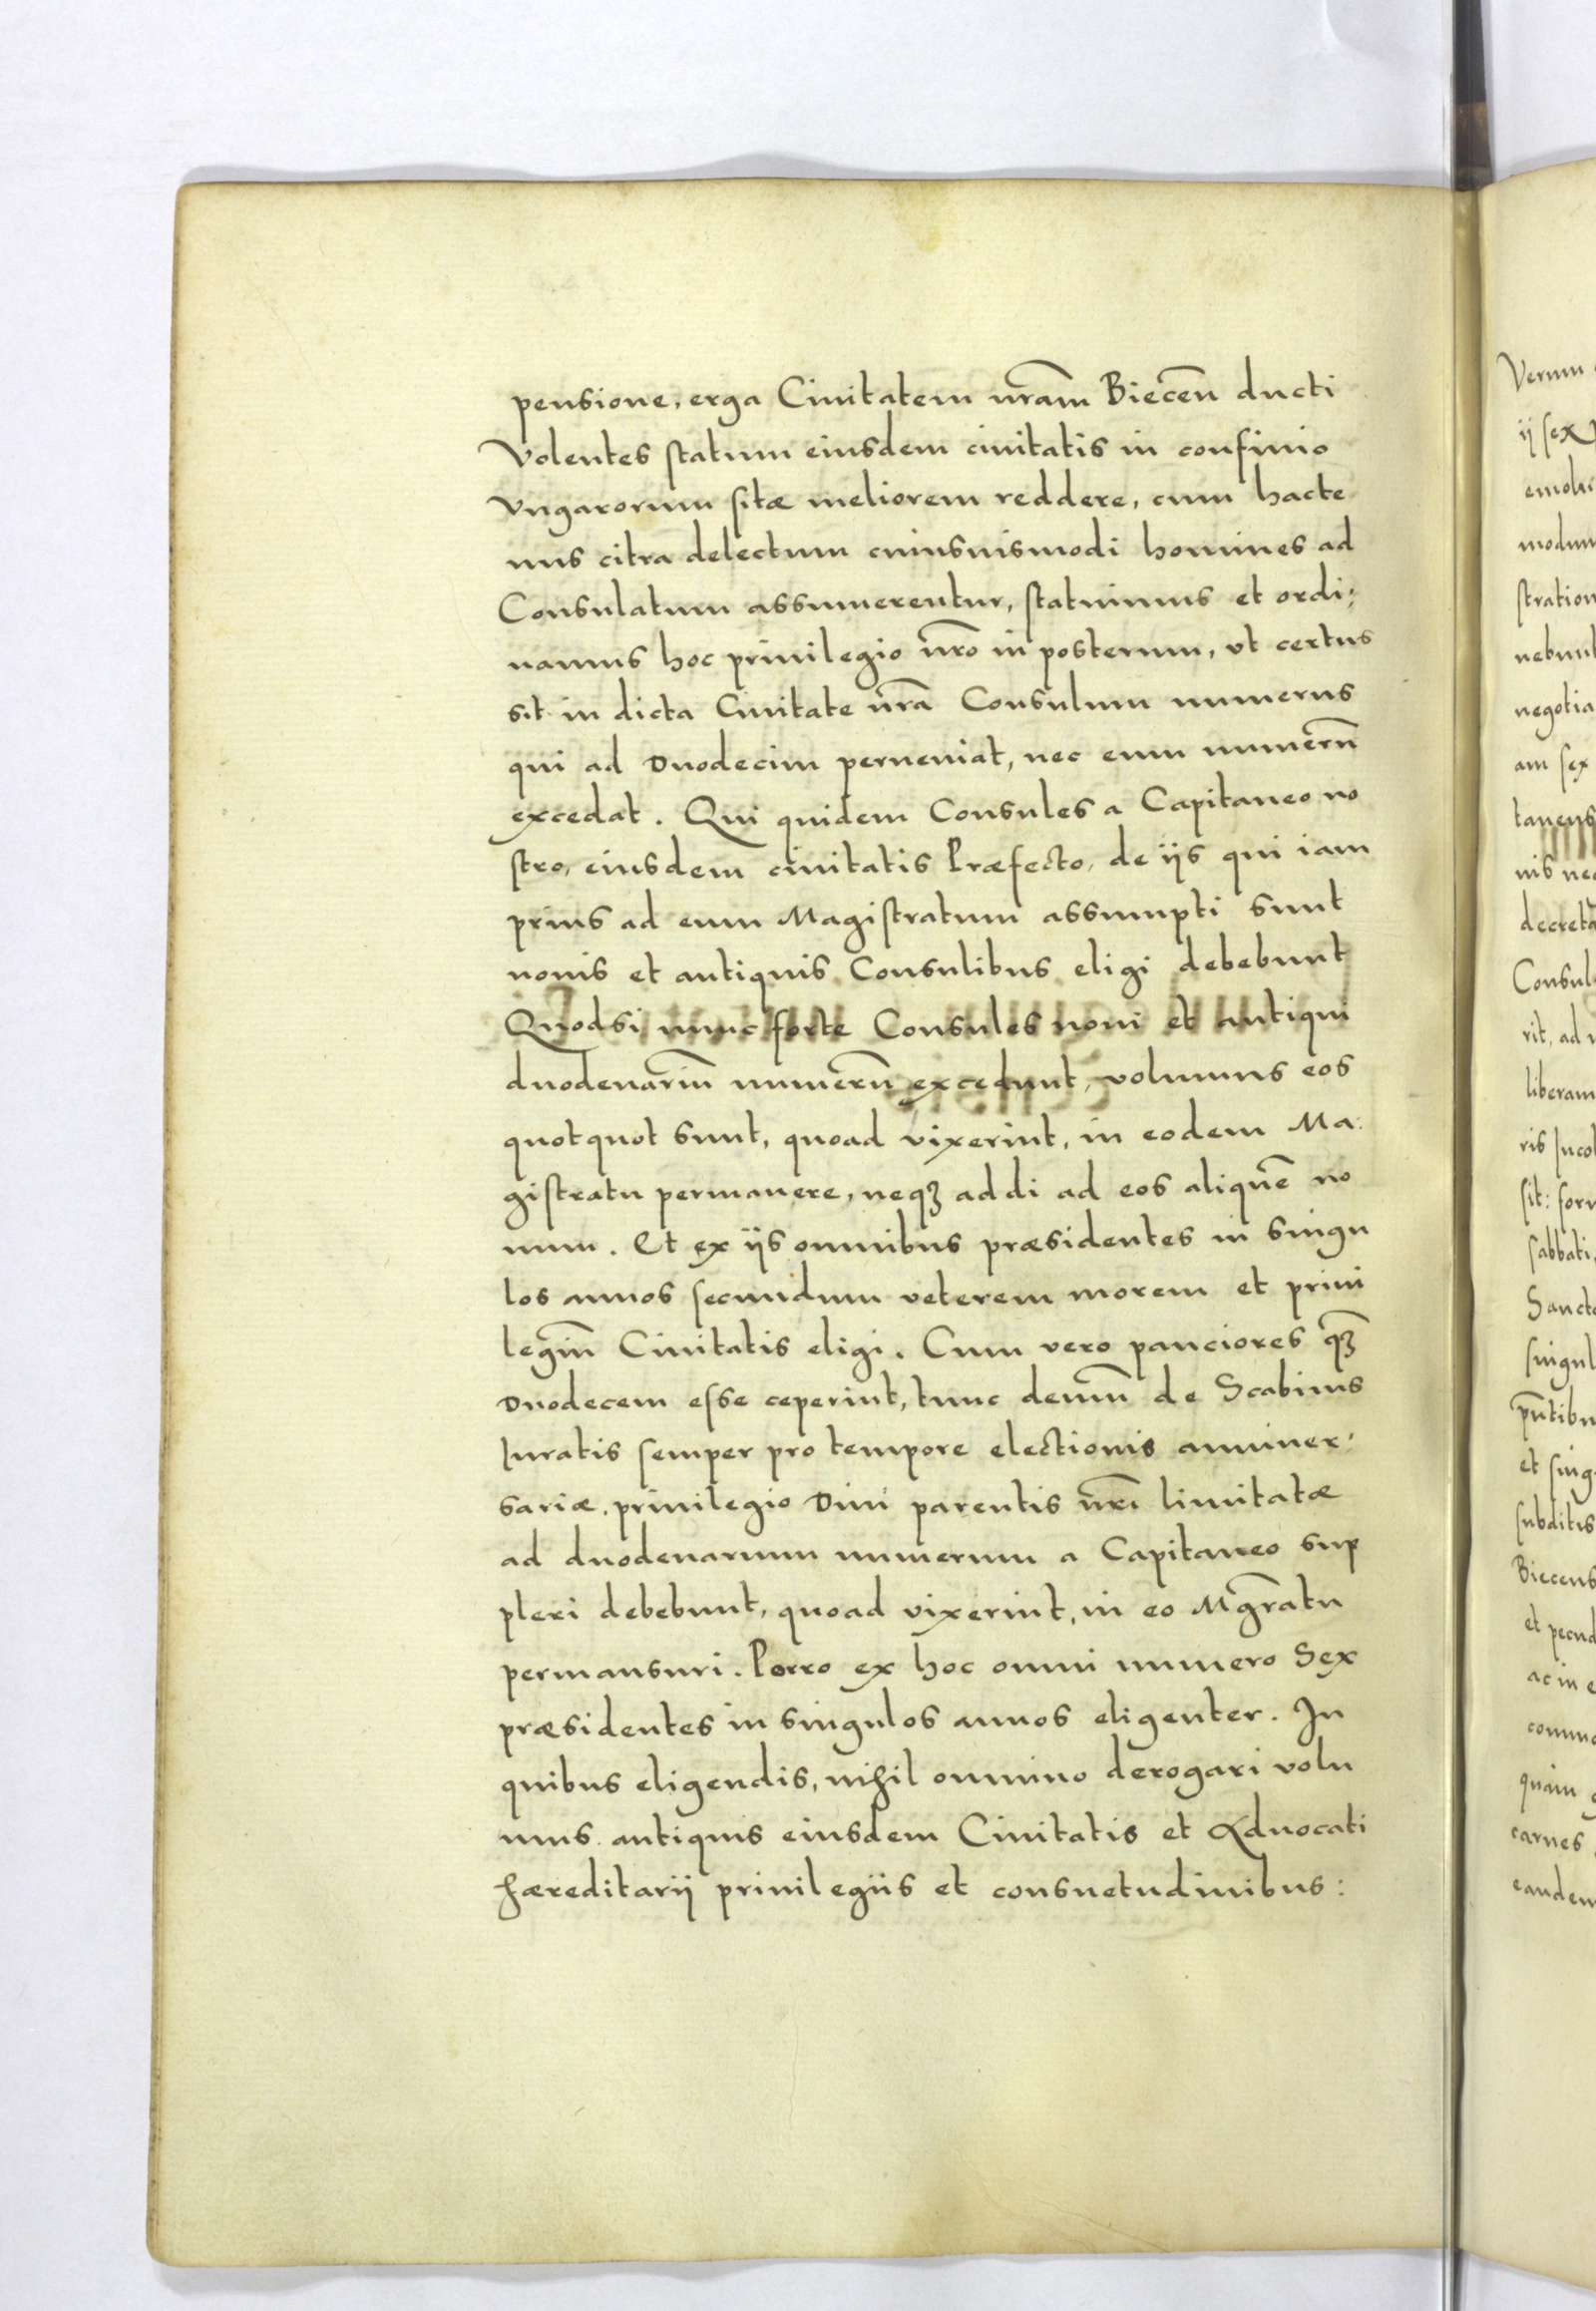 pensione, erga Ciuitatem nr̃am Biecen̄ ducti
Volentes statum eiusdem ciuitatis in confinio
Vngarorum sitæ meliorem reddere, cum hacte
nus citra delectum cuiusuismodi homines ad
Consulatum assumerentur, statuimus et ordi;
namus hoc priuilegio nr̃o in posterum, vt certus
sit in dicta Ciuitate nr̃a Consulum numerus
qui ad Duodecim perueniat, nec eum numerū
excedat. Qui quidem Consules a Capitaneo no
stro, eiusdem ciuitatis Præfecto, de ijs qui iam
prius ad eum Magistratum assumpti sunt
nouis et antiquis Consulibus eligi debebunt
Quodsi nunc forte Consules noui et antiqui
duodenariū numerū excedunt, volumus eos
quotquot sunt, quoad vixerint, in eodem Ma:
gistratu permanere, neqꝫ addi ad eos aliquē no
uum. Et ex ijs omnibus præsidentes in singu
los annos secundum veterem morem et priui
legiū Ciuitatis eligi. Cum vero pauciores qꝫ̃
Duodecem esse ceperint, tunc demū de Scabinis
Iuratis semper pro tempore electionis anniuer:
sariæ, priuilegio Diui parentis nr̃i limitatæ
ad duodenarium numerum a Capitaneo sup
pleri debebunt, quoad vixerint, in eo Mgr̃atu
permansuri. Porro ex hoc omni numero Sex
præsidentes in singulos annos eligenter. In
quibus eligendis, nihil omnino derogari volu
mus antiquis eiusdem Ciuitatis et Aduocati
hæreditarij priuilegiis et consuetudinibus:
Verum
ij sex
modum
stration
nebunt
negotia
am sex
taneus
decreta
Consul
rit, ad
liberam
sabbati,
singul
et sing
subditis
Biecens
ac in e
carnes
eandem